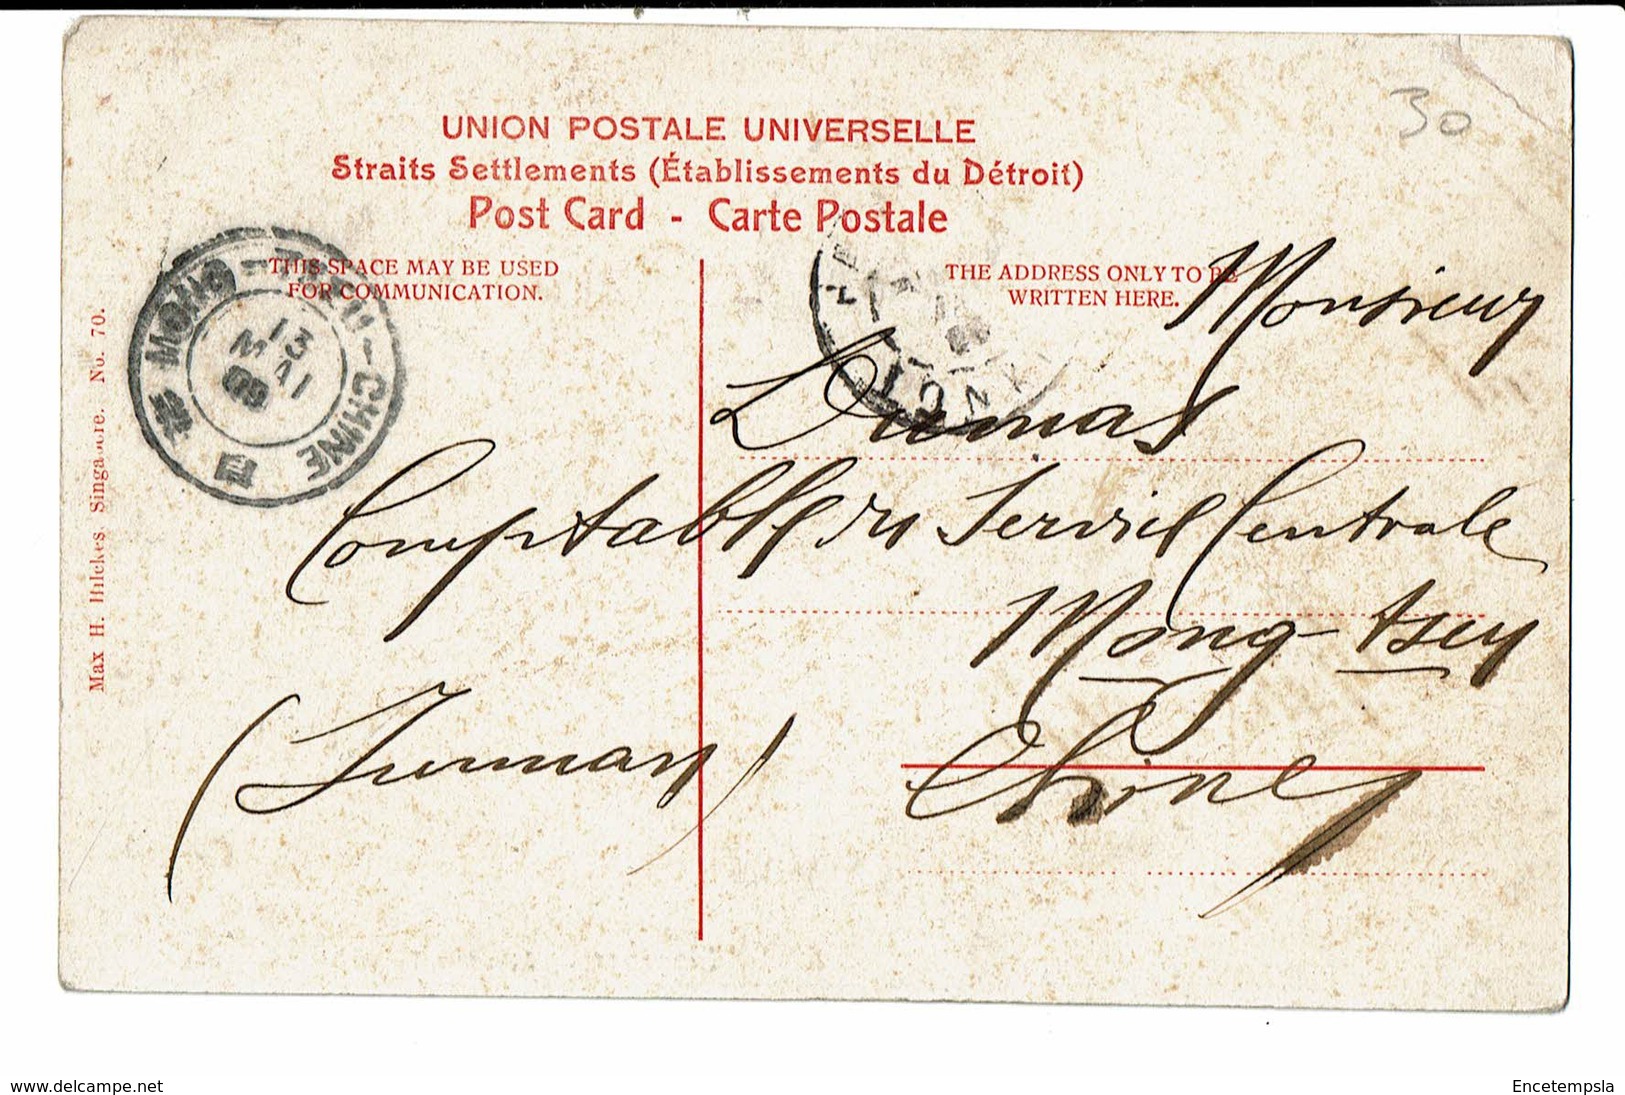 30
UNION POSTALE UNIVERSELLE
Straits Settlements (Établissements du Détroit)
Post Card - Carte Postale
THIS SPACE MAY BE USED
FOR COMMUNICATION.
THE ADDRESS ONLY TO BE
WRITTEN HERE.
MONG-TZEU-CHINE
13
MAI
08
Monsieur
Dumas
Comptable du Service Centrale
Mong-tsey
(Yunnan)
Chine
Max H. Hilckes, Singapore. No. 70.
www.delcampe.net
Encetempsla